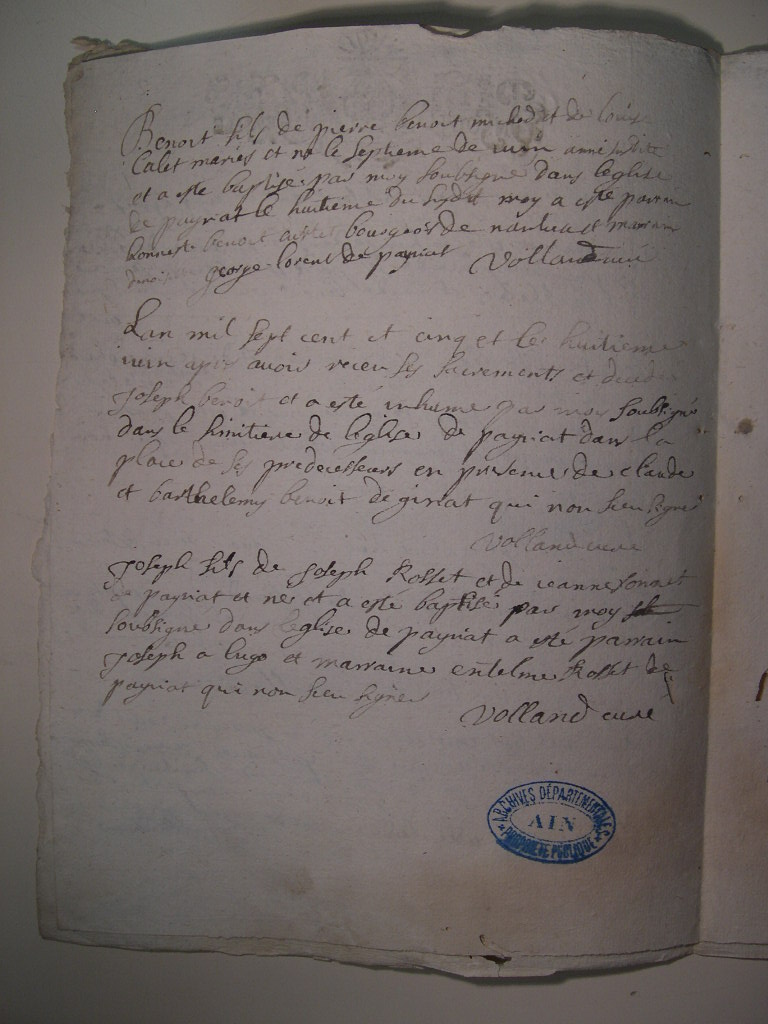 Benoit fils de pierre benoit michod et de louise
Calet mariés et né le septieme de iuin année susditte
et a este baptisé par moy soubsigne dans leglise
de payriat le huitieme du susdit moy a este parrain
honneste benoit bourgeois de nantua et marraine
george lorent de payriat Volland curé
Lan mil sept cent et cinq et le huitieme
iuin apres avoir receu ses sacrements et decede
Joseph benoit et a esté inhumé par moy soubsigné
dans le simitiere de leglise de payriat dans la
place de ses predecesseurs en presence de claude
et barthelemy benoit de giriat qui non sceu signer
Volland curé
Joseph fils de Joseph Rosset et de ieanne
de payriat et né et a esté baptisé par moy
soubsigne dans leglise de payriat a esté parrain
Joseph a lugo et marraine entelme Rosset de
payriat qui non sceu signer
Volland curé
ARCHIVES DÉPARTEMENTALES
AIN
PROPRIÉTÉ PUBLIQUE